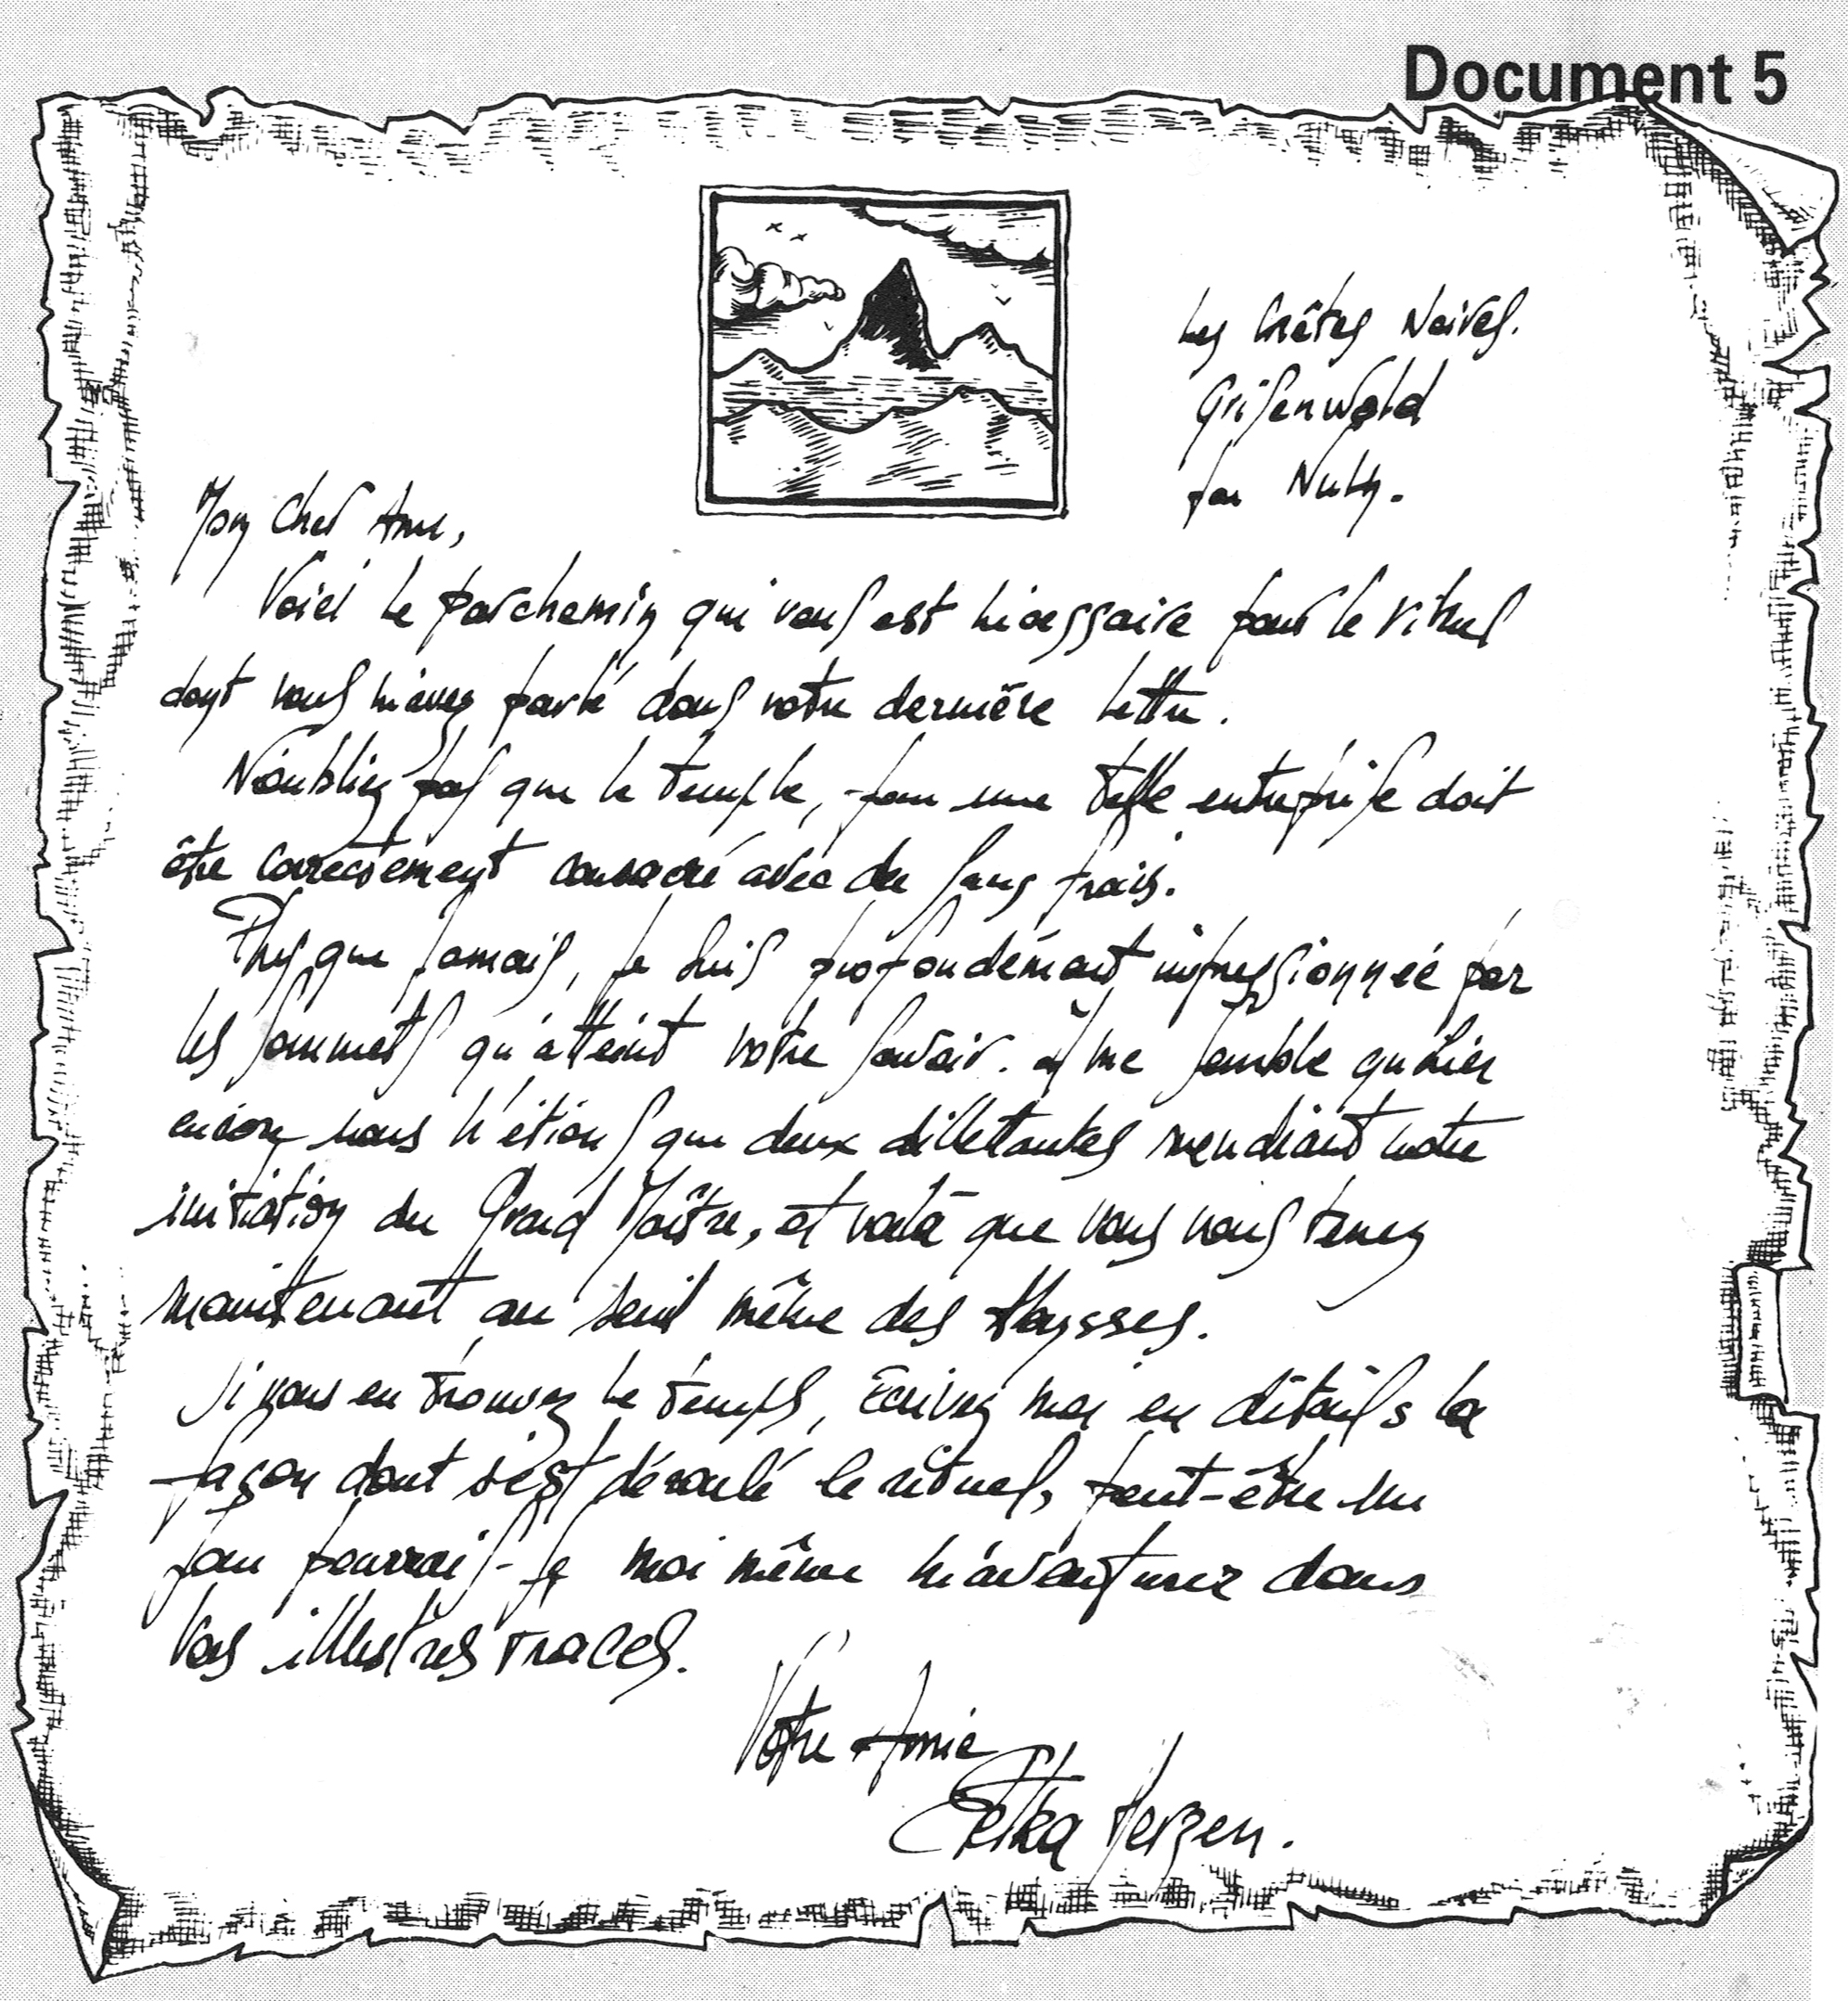 Document 5
Les Crêtes Noires.
Grisenwald
par Nuln.
Mon Cher Ami,
Voici le parchemin qui vous est nécessaire pour le rituel
dont vous m'avez parlé dans votre dernière lettre.
N'oubliez pas que le temple, pour une telle entreprise doit
être correctement consacré avec du sang frais.
Plus que jamais, je suis profondément impressionnée par
les sommets qu'atteint votre savoir. Il me semble qu'hier
encore nous n'étions que deux dillettantes mendiant notre
initiation du Grand Maître, et voilà que vous vous tenez
maintenant au seuil même des Abysses.
Si vous en trouvez le temps, Ecrivez moi en détails la
façon dont s'est déroulé le rituel, peut-être un
jour pourrais-je moi même m'aventurer dans
Vos illustres traces.
Votre Amie
Etelka Herzen.